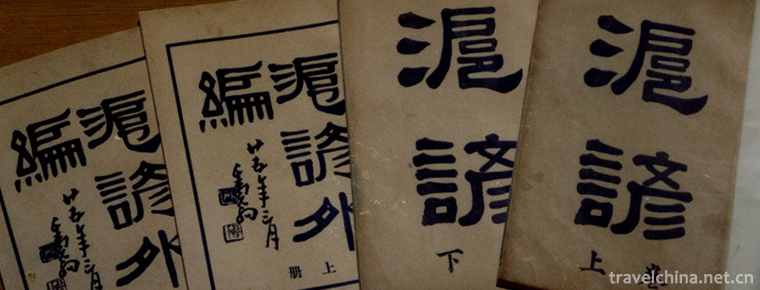 滬諺外
編
廿五年三月
滬諺外
編
廿五年三月
上册
滬諺
下
滬諺
上
travelchina.net.cn